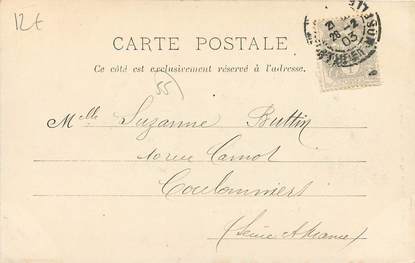 12€
CARTE POSTALE
Ce côté est exclusivement réservé à l'adresse.
55
Melle Suzanne Buttin
10 rue Carnot
Coulommiers
(Seine et Marne)
28 -2
03